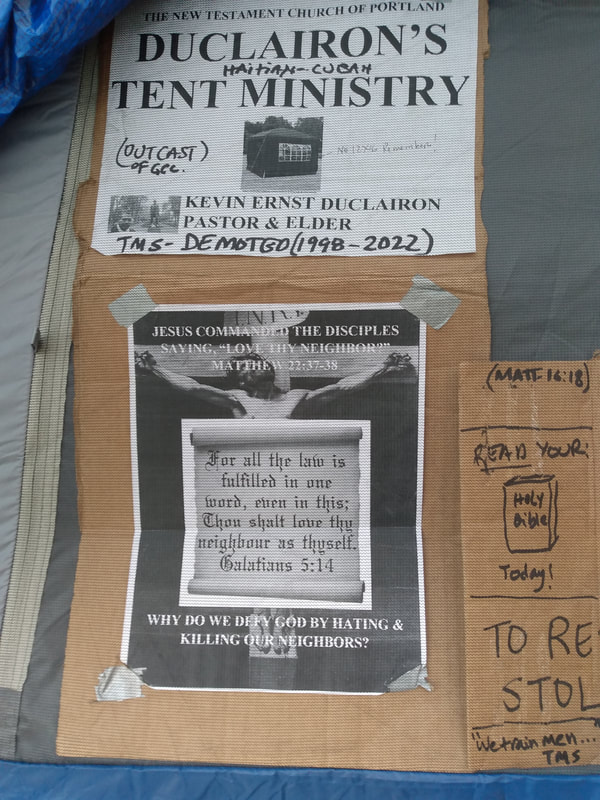 THE NEW TESTAMENT CHURCH OF PORTLAND
DUCLAIRON'S
HAITIAN-CUBAN
TENT MINISTRY
(OUTCAST)
OF GCC.
Remembers!
KEVIN ERNST DUCLAIRON
PASTOR & ELDER
TMS- DEMOTED (1998-2022)
JESUS COMMANDED THE DISCIPLES
SAYING, "LOVE THY NEIGHBOR?"
MATTHEW 22:37-38
For all the law is
fulfilled in one
word, even in this;
Thou shalt love thy
neighbour as thyself.
Galatians 5:14
WHY DO WE DEFY GOD BY HATING &
KILLING OUR NEIGHBORS?
(MATT 16:18)
READ YOUR
HOLY
Bible
Today!
TO RE
STOL
"We train men..."
TMS